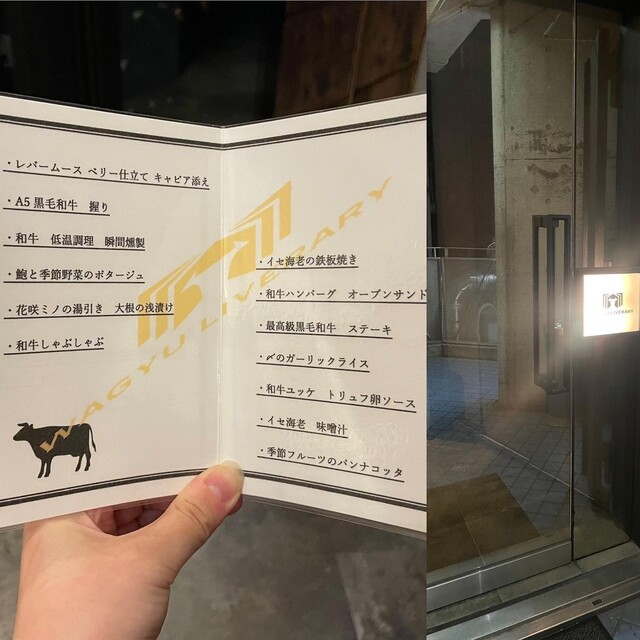 ・レバームース ベリー仕立て キャビア添え
・A5黒毛和牛 握り
・和牛 低温調理 瞬間燻製
・鮑と季節野菜のポタージュ
・花咲ミノの湯引き 大根の浅漬け
・和牛しゃぶしゃぶ
WAGYU LIVERARY
・イセ海老の鉄板焼き
・和牛ハンバーグ オープンサンド
・最高級黒毛和牛 ステーキ
・〆のガーリックライス
・和牛ユッケ トリュフ卵ソース
・イセ海老 味噌汁
・季節フルーツのパンナコッタ
LIVERARY